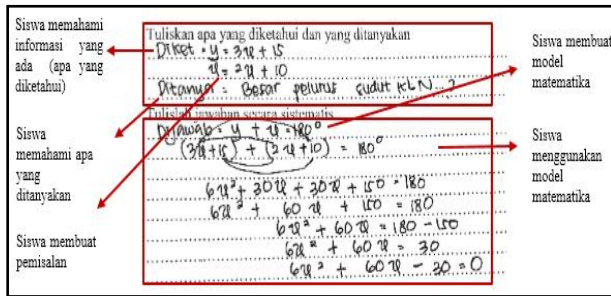 Siswa memahami
informasi yang
ada (apa yang
diketahui)
Siswa
memahami apa
yang
ditanyakan
Siswa membuat
pemisalan
Tuliskan apa yang diketahui dan yang ditanyakan
Diket : y = 3x + 15
x = 2x + 10
Ditanya : Besar pelurus sudut KLN...?
Tulislah jawaban secara sistematis
Dijawab = y + x = 180°
(3x+15) + (2x+10) = 180°
6x² + 30x + 30x + 150 = 180
6x² + 60x + 150 = 180
6x² + 60x = 180 - 150
6x² + 60x = 30
6x² + 60x - 30 = 0
Siswa membuat
model
matematika
Siswa
menggunakan
model
matematika